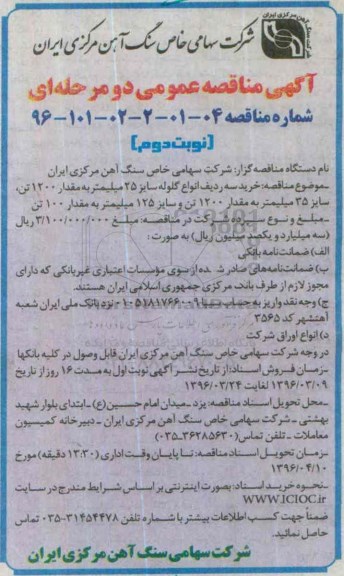 شرکت سهامی خاص سنگ آهن مرکزی ایران
شرکت سنگ آهن مرکزی ایران
آگهی مناقصه عمومی دو مرحله‌ای
شماره مناقصه ۰۴-۰۱-۲-۰۲-۱۰۱-۹۶
(نوبت دوم)
نام دستگاه مناقصه گزار: شرکت سهامی خاص سنگ آهن مرکزی ایران
-موضوع مناقصه: خرید سه ردیف انواع گلوله سایز ۲۵ میلیمتر به مقدار ۱۲۰۰ تن،
سایز ۳۵ میلیمتر به مقدار ۱۲۰۰ تن و سایز ۱۲۵ میلیمتر به مقدار ۱۰۰ تن
-مبلغ و نوع سپرده شرکت در مناقصه: مبلغ ۳/۱۰۰/۰۰۰/۰۰۰ ریال
(سه میلیارد و یکصد میلیون ریال) به صورت:
الف) ضمانت نامه بانکی
ب) ضمانت‌نامه‌های صادر شده از سوی مؤسسات اعتباری غیربانکی که دارای
مجوز لازم از طرف بانک مرکزی جمهوری اسلامی ایران هستند.
ج) وجه نقد واریز به حساب سیبا ۰۱۰۵۱۷۸۱۷۶۶۰۰۹ نزد بانک ملی ایران شعبه
آهنشهر کد ۳۵۶۵
د) انواع اوراق شرکت
در وجه شرکت سهامی خاص سنگ آهن مرکزی ایران قابل وصول در کلیه بانکها
-زمان فروش اسناد: از تاریخ نشر آگهی نوبت اول به مدت ۱۶ روز از تاریخ
۱۳۹۶/۰۳/۰۹ لغایت ۱۳۹۶/۰۳/۲۴
-محل تحویل اسناد مناقصه: یزد - میدان امام حسین (ع) - ابتدای بلوار شهید
بهشتی - شرکت سهامی خاص سنگ آهن مرکزی ایران - دبیرخانه کمیسیون
معاملات - تلفن تماس (۳۶۲۸۵۶۳۰-۰۳۵)
-زمان تحویل اسناد مناقصه: تا پایان وقت اداری (۱۳:۳۰ دقیقه) مورخ
۱۳۹۶/۰۴/۱۰
-نحوه خرید اسناد: بصورت اینترنتی بر اساس شرایط مندرج در سایت
WWW.ICIOC.IR
ضمناً جهت کسب اطلاعات بیشتر با شماره تلفن ۳۱۴۵۴۴۷۸-۰۳۵ تماس
حاصل نمائید.
شرکت سهامی سنگ آهن مرکزی ایران